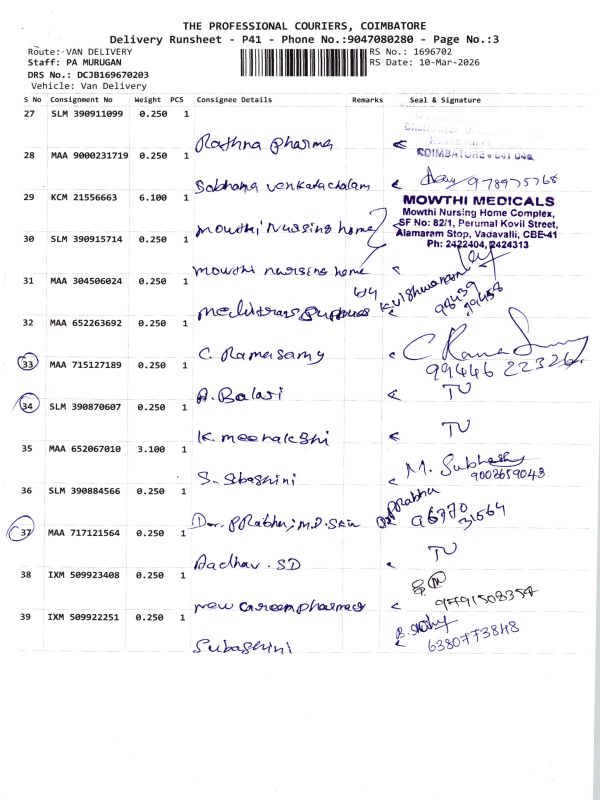 THE PROFESSIONAL COURIERS, COIMBATORE
Delivery Runsheet - P41 - Phone No.:9047080280 - Page No.:3
Route: VAN DELIVERY
RS No.: 1696702
Staff: PA MURUGAN
RS Date: 10-Mar-2026
DRS No.: DCJB169670203
Vehicle: Van Delivery
S No Consignment No Weight PCS Consignee Details Remarks Seal & Signature
27 SLM 390911099 0.250 1
Rathna pharma
COIMBATORE
28 MAA 9000231719 0.250 1
Sobhana venkatachalam
29 KCM 21556663 6.100 1
MOWTHI MEDICALS
Mowthi Nursing Home Complex,
SF No: 82/1, Perumal Kovil Street,
Alamaram Stop, Vadavalli, CBE-41
Ph: 2422404, 2424313
mowthi nursing home
30 SLM 390915714 0.250 1
mowthi nursing home
31 MAA 304506024 0.250 1
32 MAA 652263692 0.250 1
C. Ramasamy
99446 22326
33 MAA 715127189 0.250 1
A. Balaji
TV
34 SLM 390870607 0.250 1
K. meenakshi
TV
35 MAA 652067010 3.100 1
S. Sbashini
M. Subhash
9003659043
36 SLM 390884566 0.250 1
Prabha
96770
31564
37 MAA 717121564 0.250 1
Aadhav. SD
TV
38 IXM 509923408 0.250 1
new careem pharmacy
9791508357
39 IXM 509922251 0.250 1
Subashini
6380773848